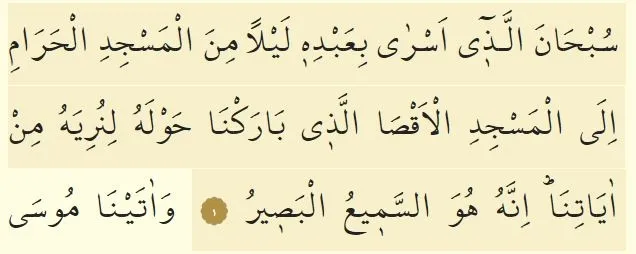 سُبْحَانَ الَّذ۪ٓي اَسْرٰى بِعَبْدِه۪ لَيْلًا مِنَ الْمَسْجِدِ الْحَرَامِ
اِلَى الْمَسْجِدِ الْاَقْصَا الَّذ۪ي بَارَكْنَا حَوْلَهُ لِنُرِيَهُ مِنْ
اٰيَاتِنَاۜ اِنَّهُ هُوَ السَّم۪يعُ الْبَص۪يرُ ١ وَاٰتَيْنَا مُوسَى